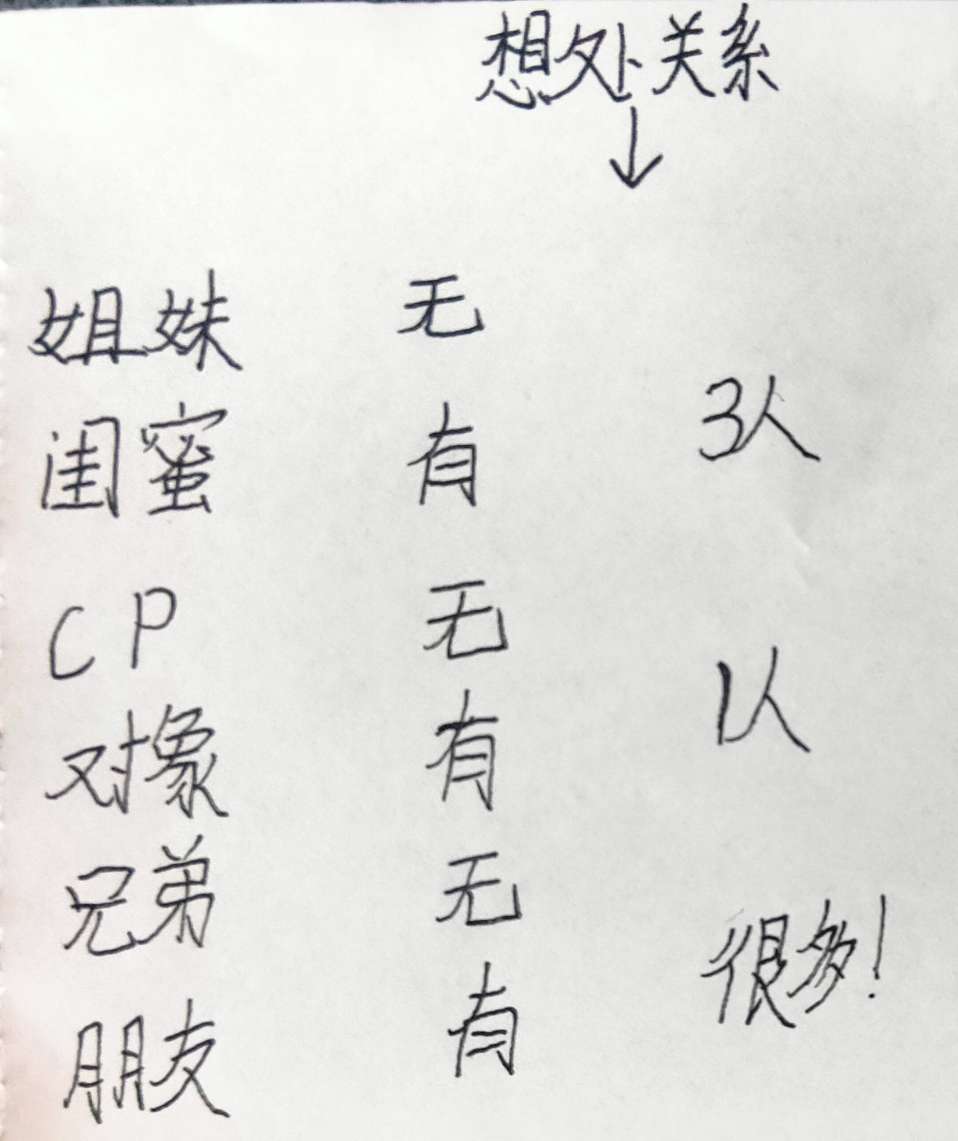 想处关系
↓
姐妹 无
闺蜜 有 3人
CP 无
对象 有 1人
兄弟 无
朋友 有 很多!